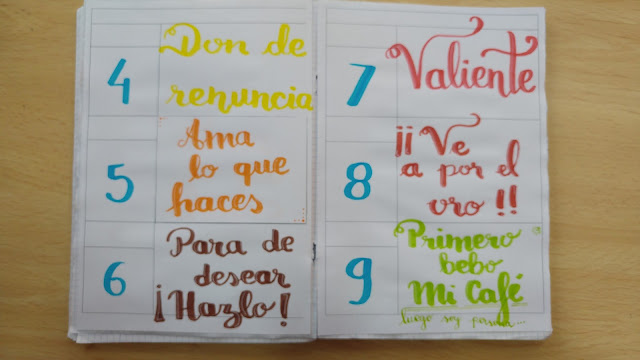 4
Don de
renuncia
5
Ama
lo que
haces
6
Para de
desear
¡Hazlo!
7
Valiente
8
¡¡Ve
a por el
oro!!
9
Primero
bebo
Mi Café
luego soy persona...